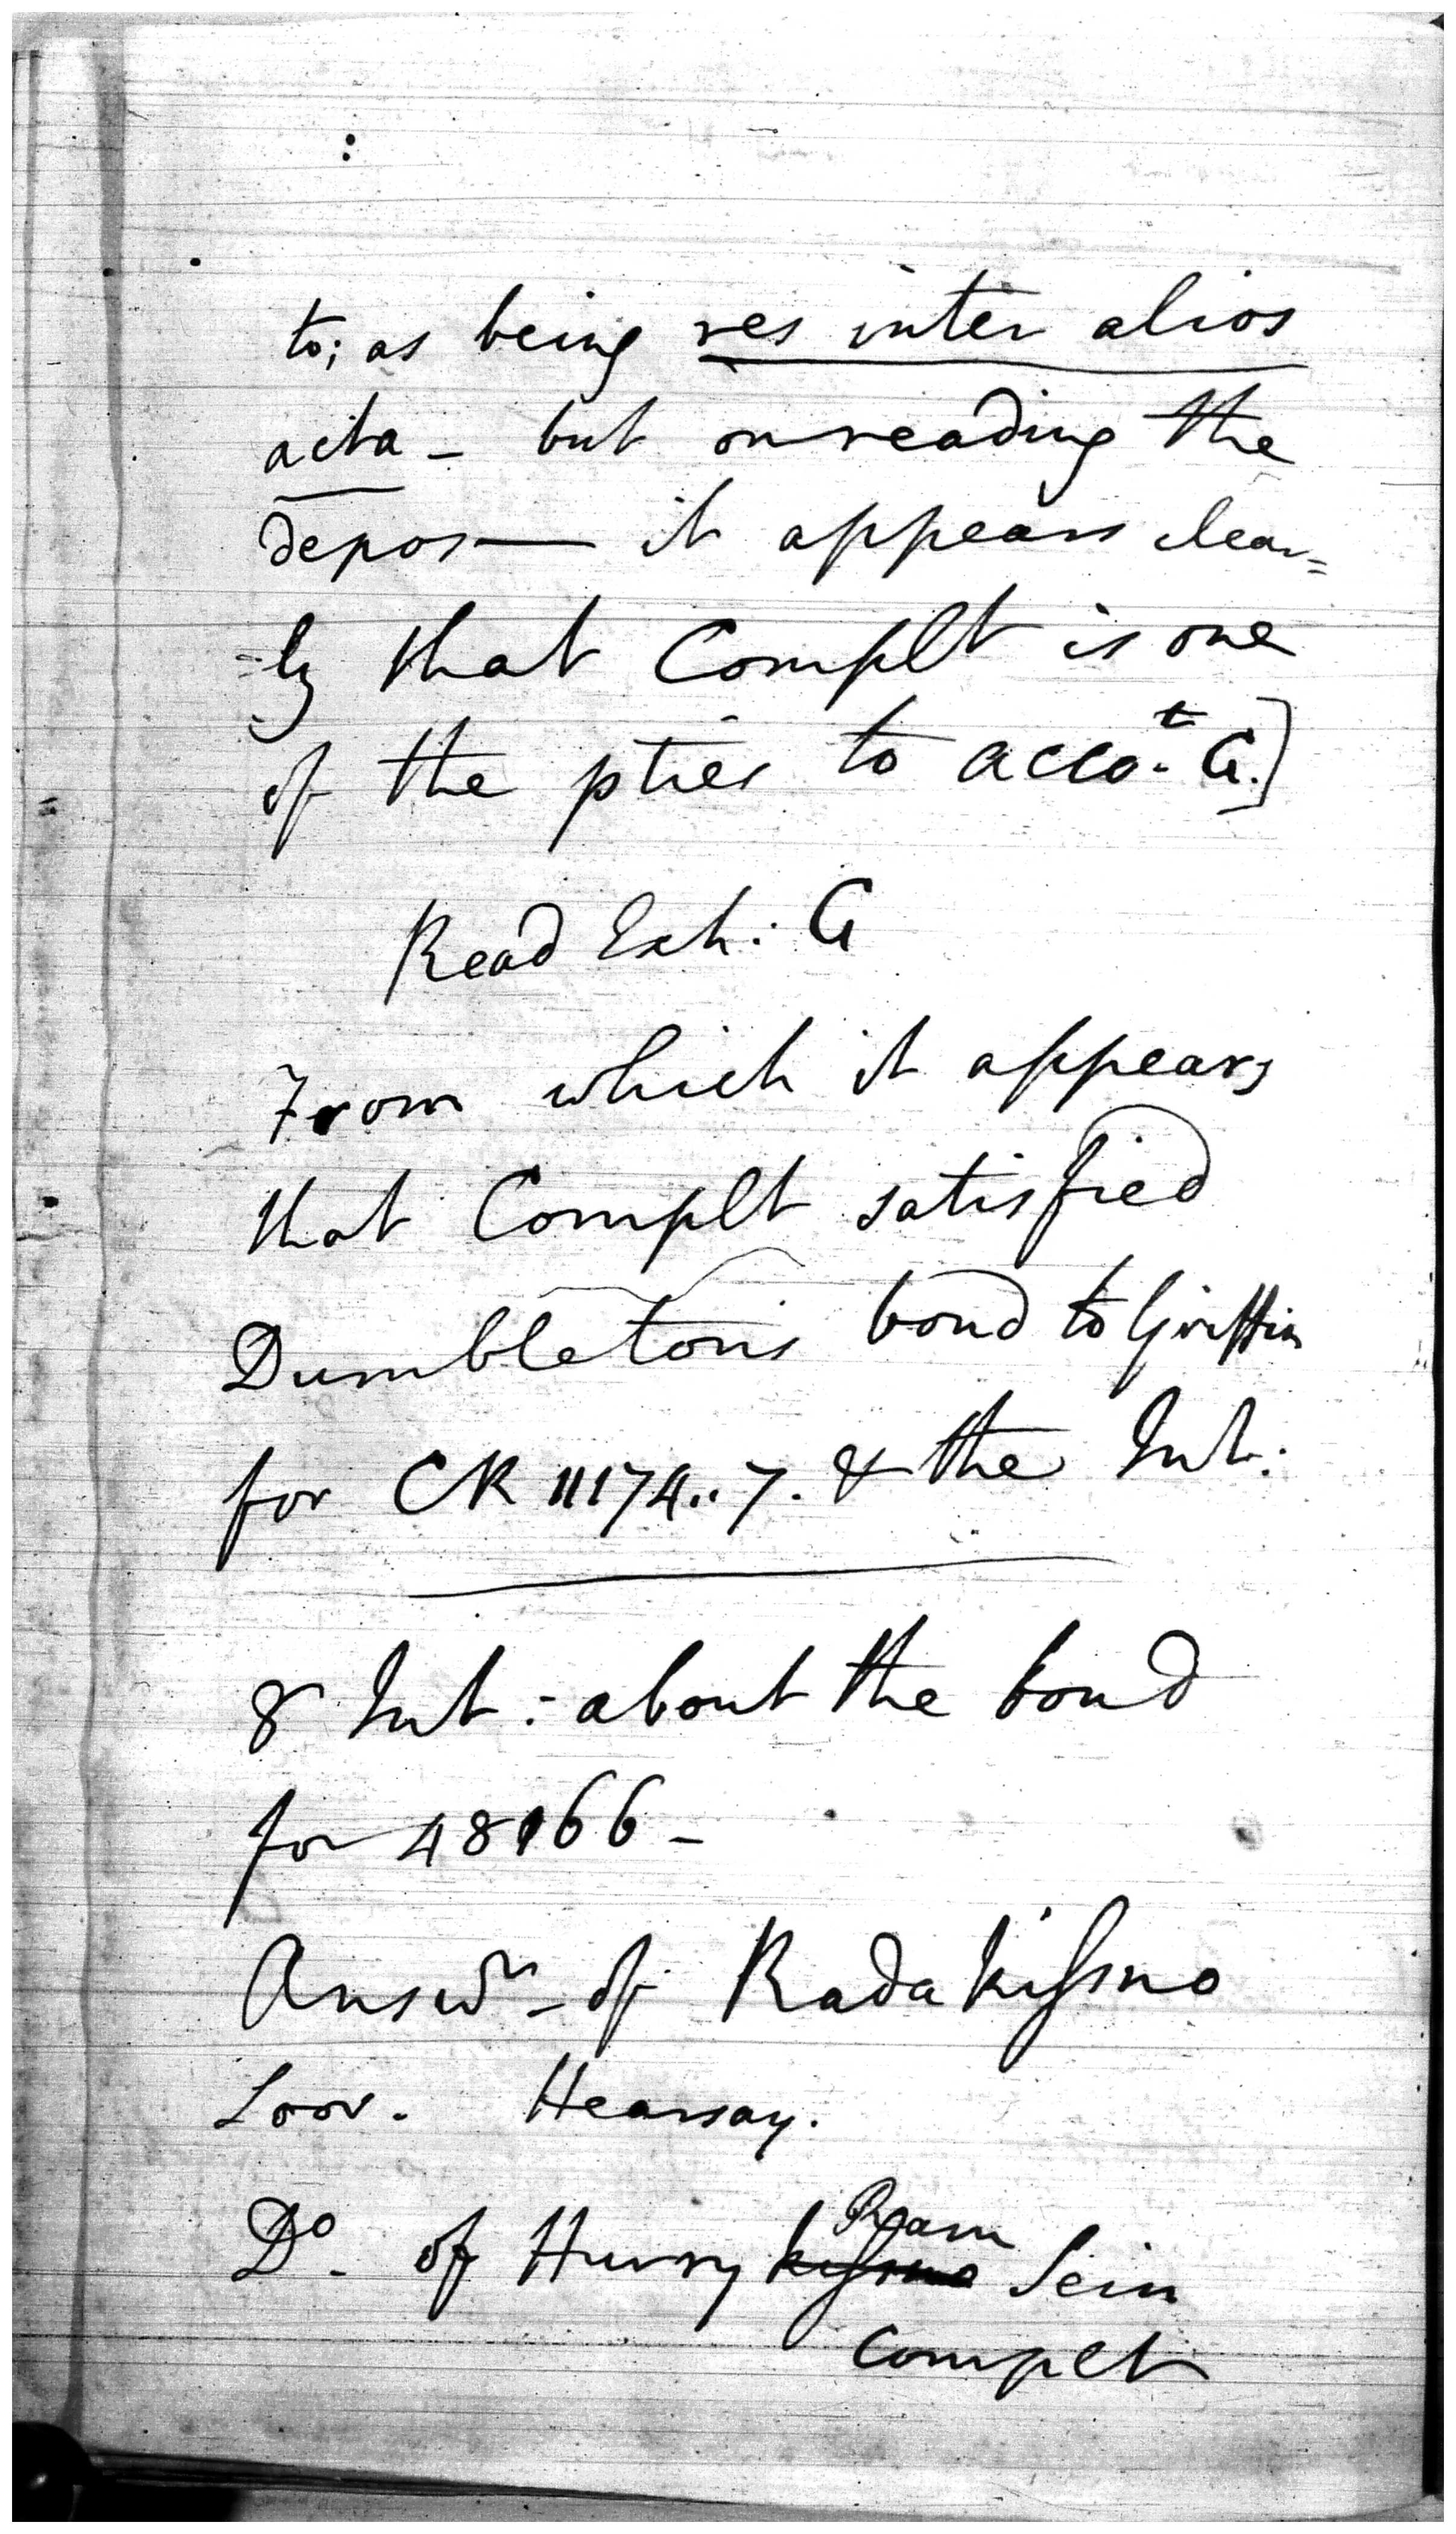 to; as being res inter alios
acta - but on reading the
depos— it appears clear=
=ly that Complt is one
of the pties to acco.t G.]
Read Exh: G
From which it appears
that Complt satisfied
Dumbletons bond to Griffin
for CR 11174..7. & the Int:
8 Int: about the bond
for 48166 -
Answr - of Radakissno
Loor. Hearsay.
Do. of Hurry kissno Ram Sein
complt